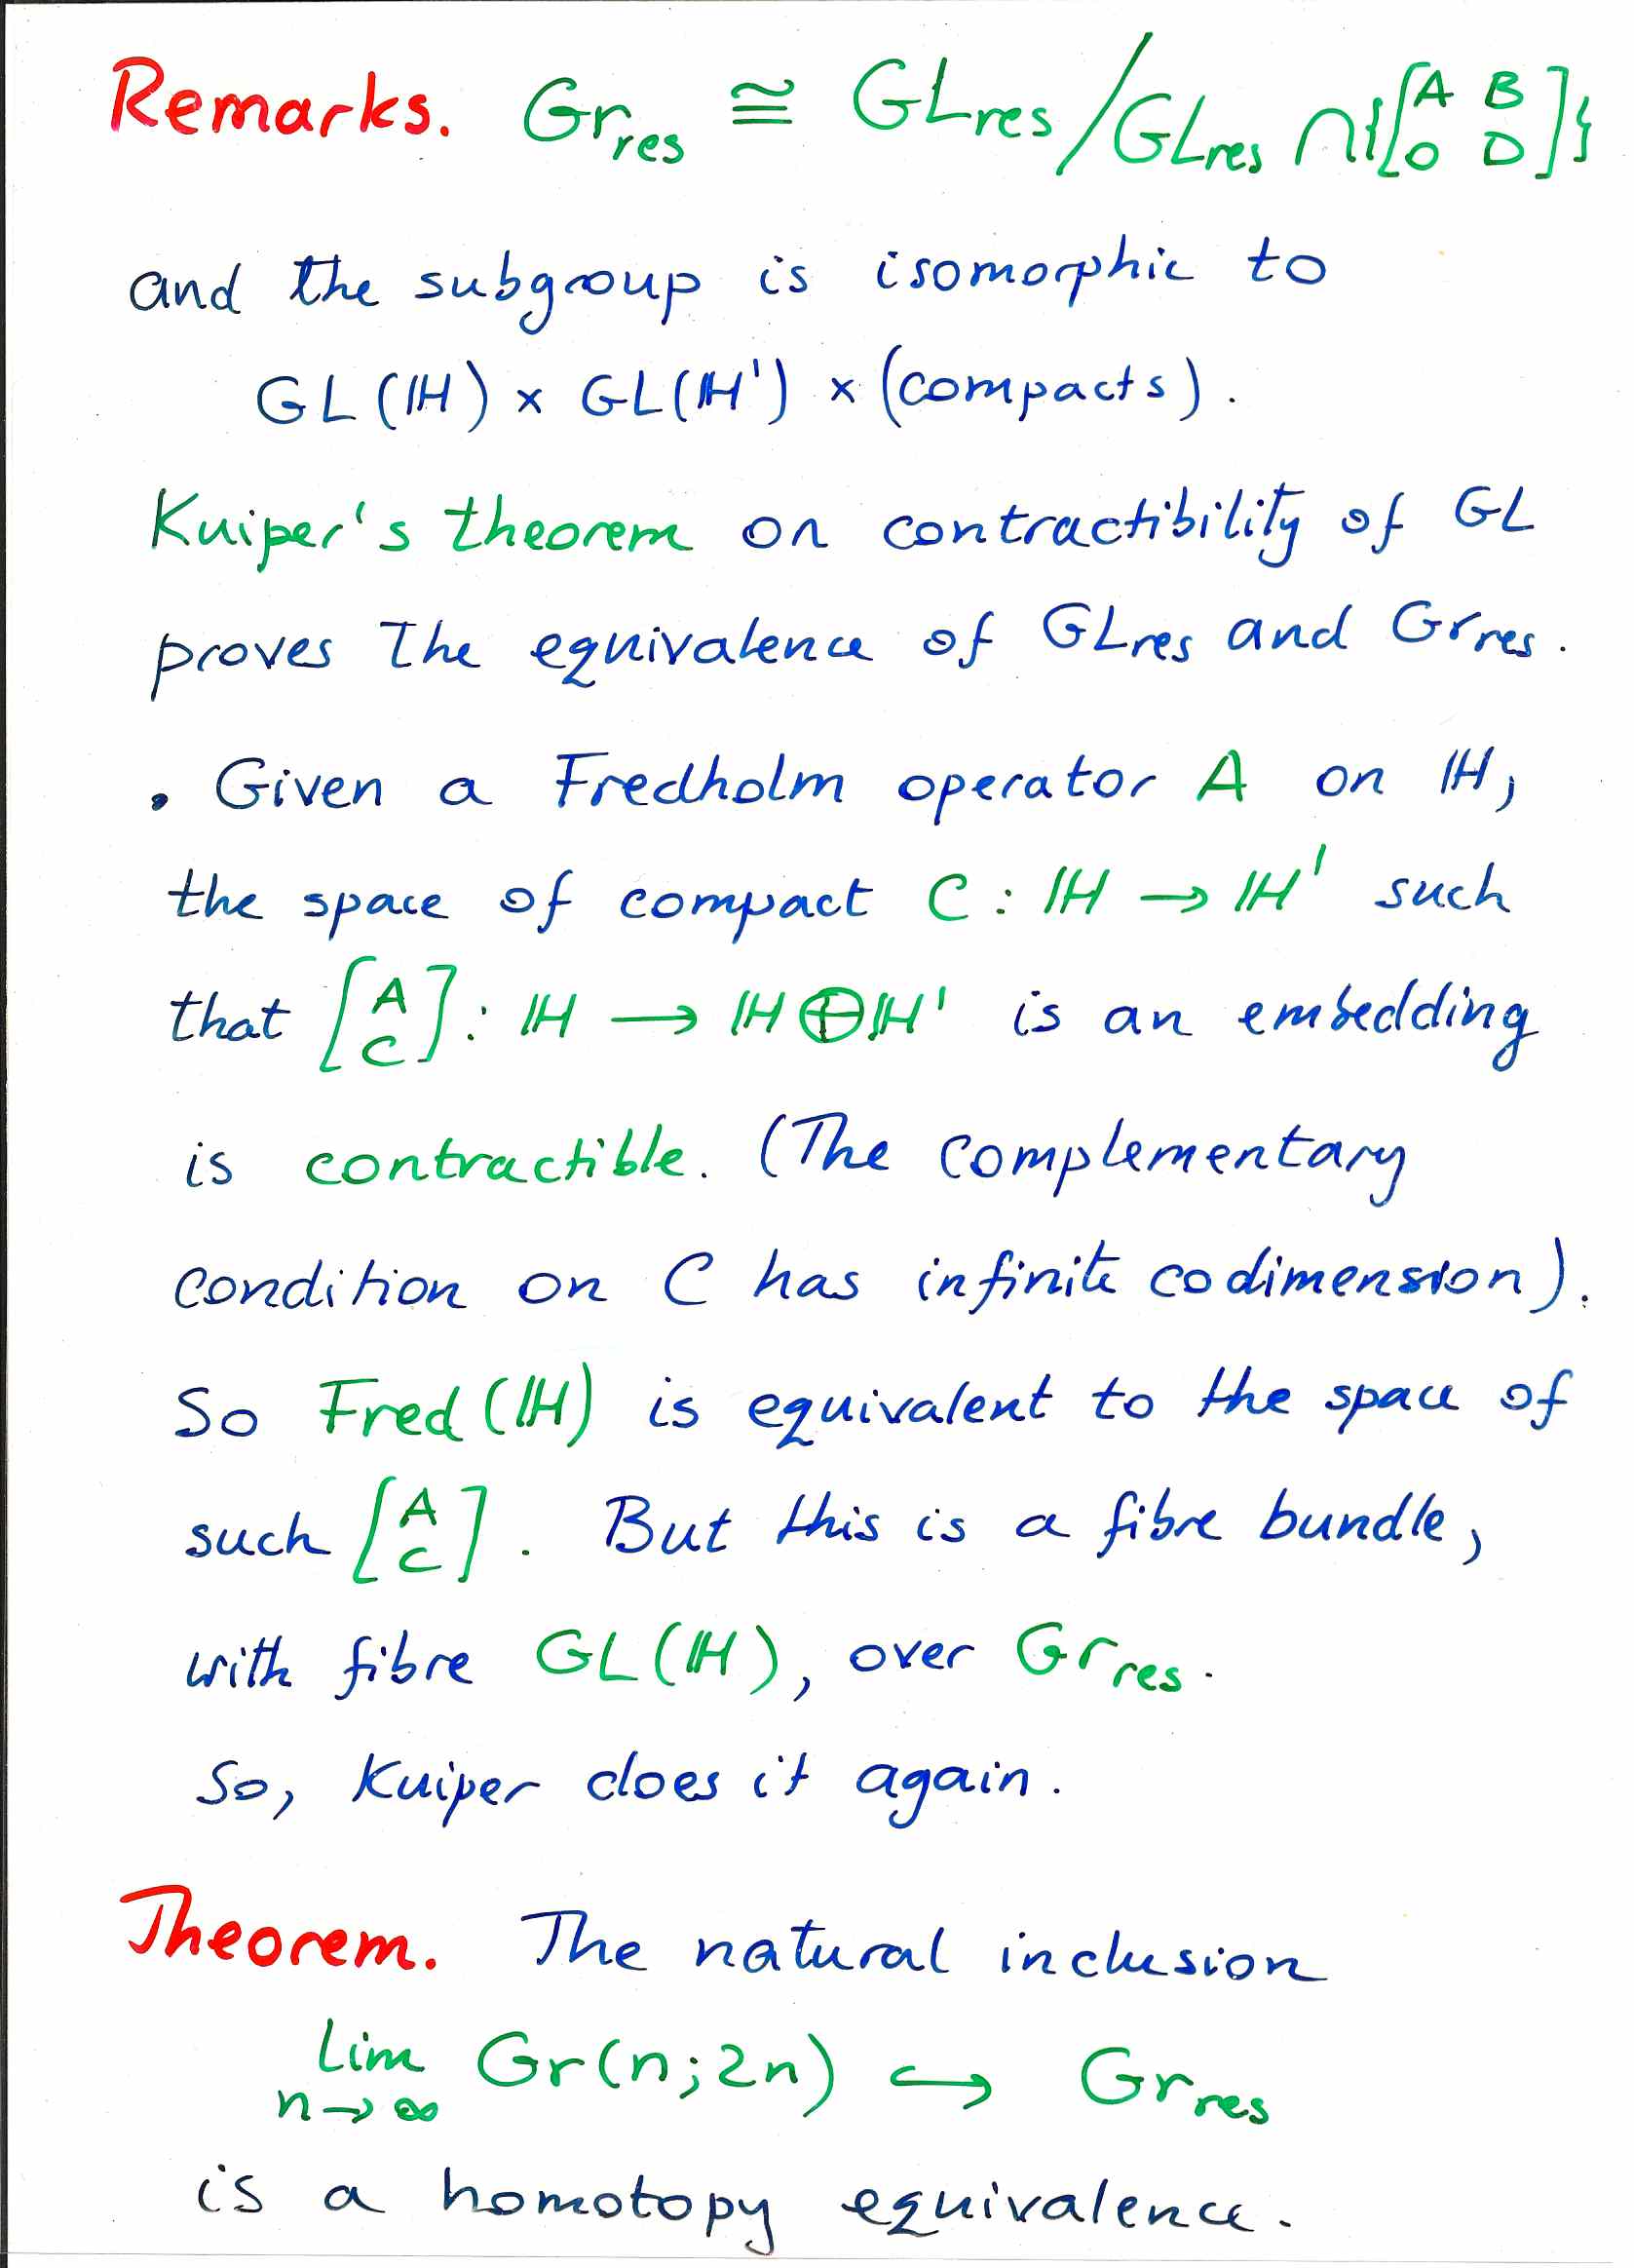 Remarks. Gr_res ≅ GL_res / GL_res ∩ {[A B; 0 D]}
and the subgroup is isomorphic to
GL(ℍ) × GL(ℍ') × (compacts).
Kuiper's theorem on contractibility of GL
proves the equivalence of GL_res and Gr_res.
• Given a Fredholm operator A on ℍ,
the space of compact C : ℍ → ℍ' such
that [A; C] : ℍ → ℍ ⊕ ℍ' is an embedding
is contractible. (The complementary
condition on C has infinite codimension).
So Fred(ℍ) is equivalent to the space of
such [A; C]. But this is a fibre bundle,
with fibre GL(ℍ), over Gr_res.
So, Kuiper does it again.
Theorem. The natural inclusion
lim_{n→∞} Gr(n;2n) ↪ Gr_res
is a homotopy equivalence.